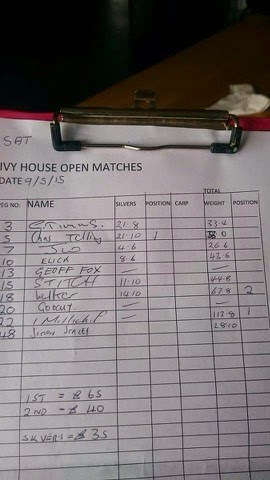 SAT
IVY HOUSE OPEN MATCHES
DATE 9/5/15
PEG NO. NAME SILVERS POSITION CARP TOTAL WEIGHT POSITION
3 21.8 33.4
5 Chas Telling 21.10 1
7 4.6 26.6
10 8.6 43.6
13 GEOFF FOX — —
15 STITCH 11.10 44.8
18 14.10 67.8 2
20 — —
22 — 113.8 1
48 Simon 28.10
1ST = £65
2ND = £40
SILVERS = £35